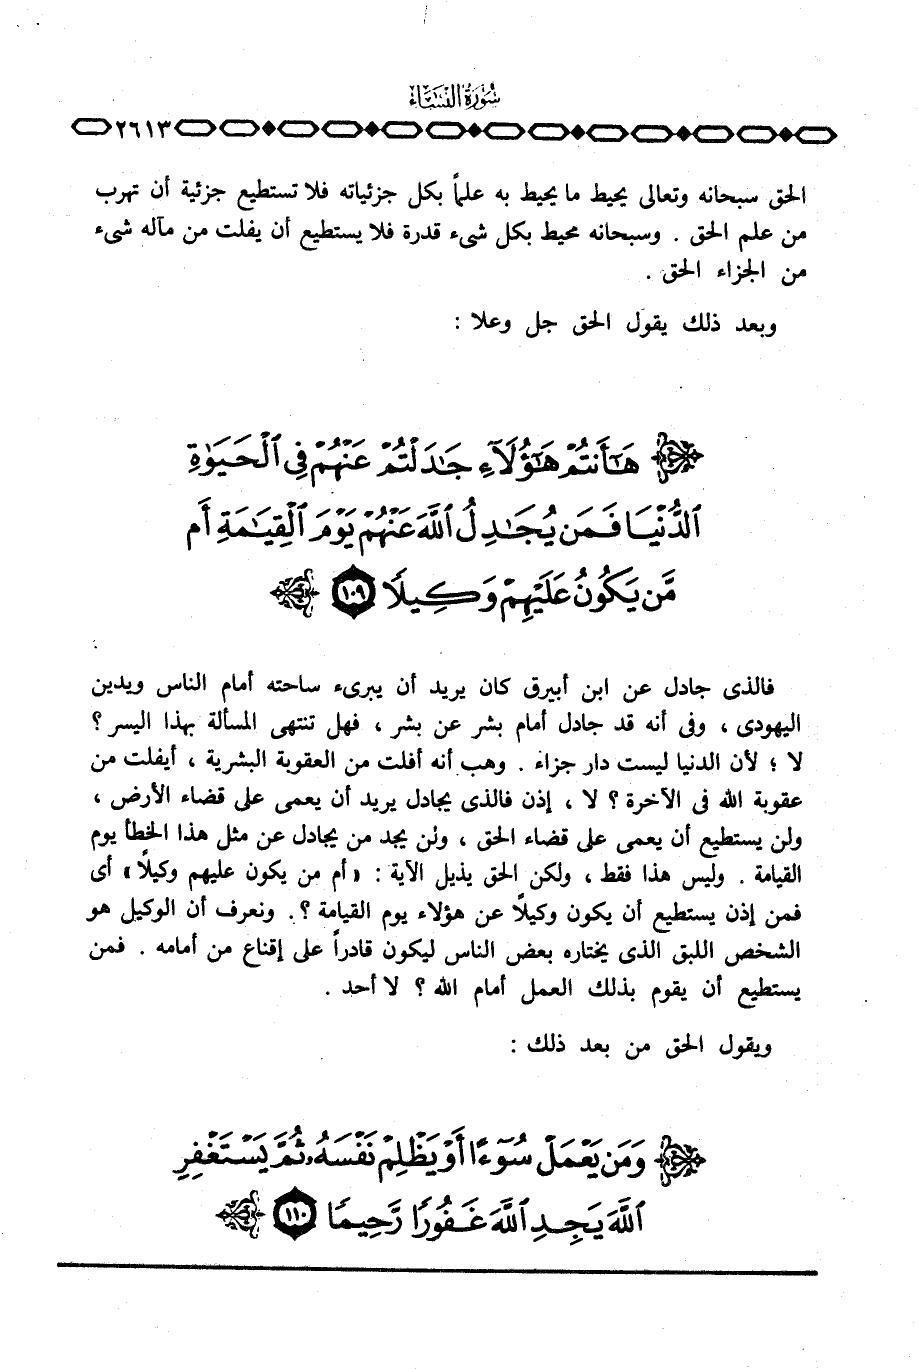 سُورَةُ النِّسَاءِ
٢٦١٣
الحق سبحانه وتعالى يحيط ما يحيط به علماً بكل جزئياته فلا تستطيع جزئية أن تهرب
من علم الحق . وسبحانه محيط بكل شىء قدرة فلا يستطيع أن يفلت من مآله شىء
من الجزاء الحق .
وبعد ذلك يقول الحق جل وعلا :
هَٰٓأَنتُمْ هَٰٓؤُلَآءِ جَٰدَلْتُمْ عَنْهُمْ فِى ٱلْحَيَوٰةِ
ٱلدُّنْيَا فَمَن يُجَٰدِلُ ٱللَّهَ عَنْهُمْ يَوْمَ ٱلْقِيَٰمَةِ أَم
مَّن يَكُونُ عَلَيْهِمْ وَكِيلًا ١٠٩
فالذى جادل عن ابن أبيرق كان يريد أن يبرىء ساحته أمام الناس ويدين
اليهودى ، وفى أنه قد جادل أمام بشر عن بشر ، فهل تنتهى المسألة بهذا اليسر ؟
لا ؛ لأن الدنيا ليست دار جزاء . وهب أنه أفلت من العقوبة البشرية ، أيفلت من
عقوبة الله فى الآخرة ؟ لا ، إذن فالذى يجادل يريد أن يعمى على قضاء الأرض ،
ولن يستطيع أن يعمى على قضاء الحق ، ولن يجد من يجادل عن مثل هذا الخطأ يوم
القيامة . وليس هذا فقط ، ولكن الحق يذيل الآية : « أم من يكون عليهم وكيلاً » أى
فمن إذن يستطيع أن يكون وكيلاً عن هؤلاء يوم القيامة ؟. ونعرف أن الوكيل هو
الشخص اللبق الذى يختاره بعض الناس ليكون قادراً على إقناع من أمامه . فمن
يستطيع أن يقوم بذلك العمل أمام الله ؟ لا أحد .
ويقول الحق من بعد ذلك :
وَمَن يَعْمَلْ سُوٓءًا أَوْ يَظْلِمْ نَفْسَهُۥ ثُمَّ يَسْتَغْفِرِ
ٱللَّهَ يَجِدِ ٱللَّهَ غَفُورًا رَّحِيمًا ١١٠